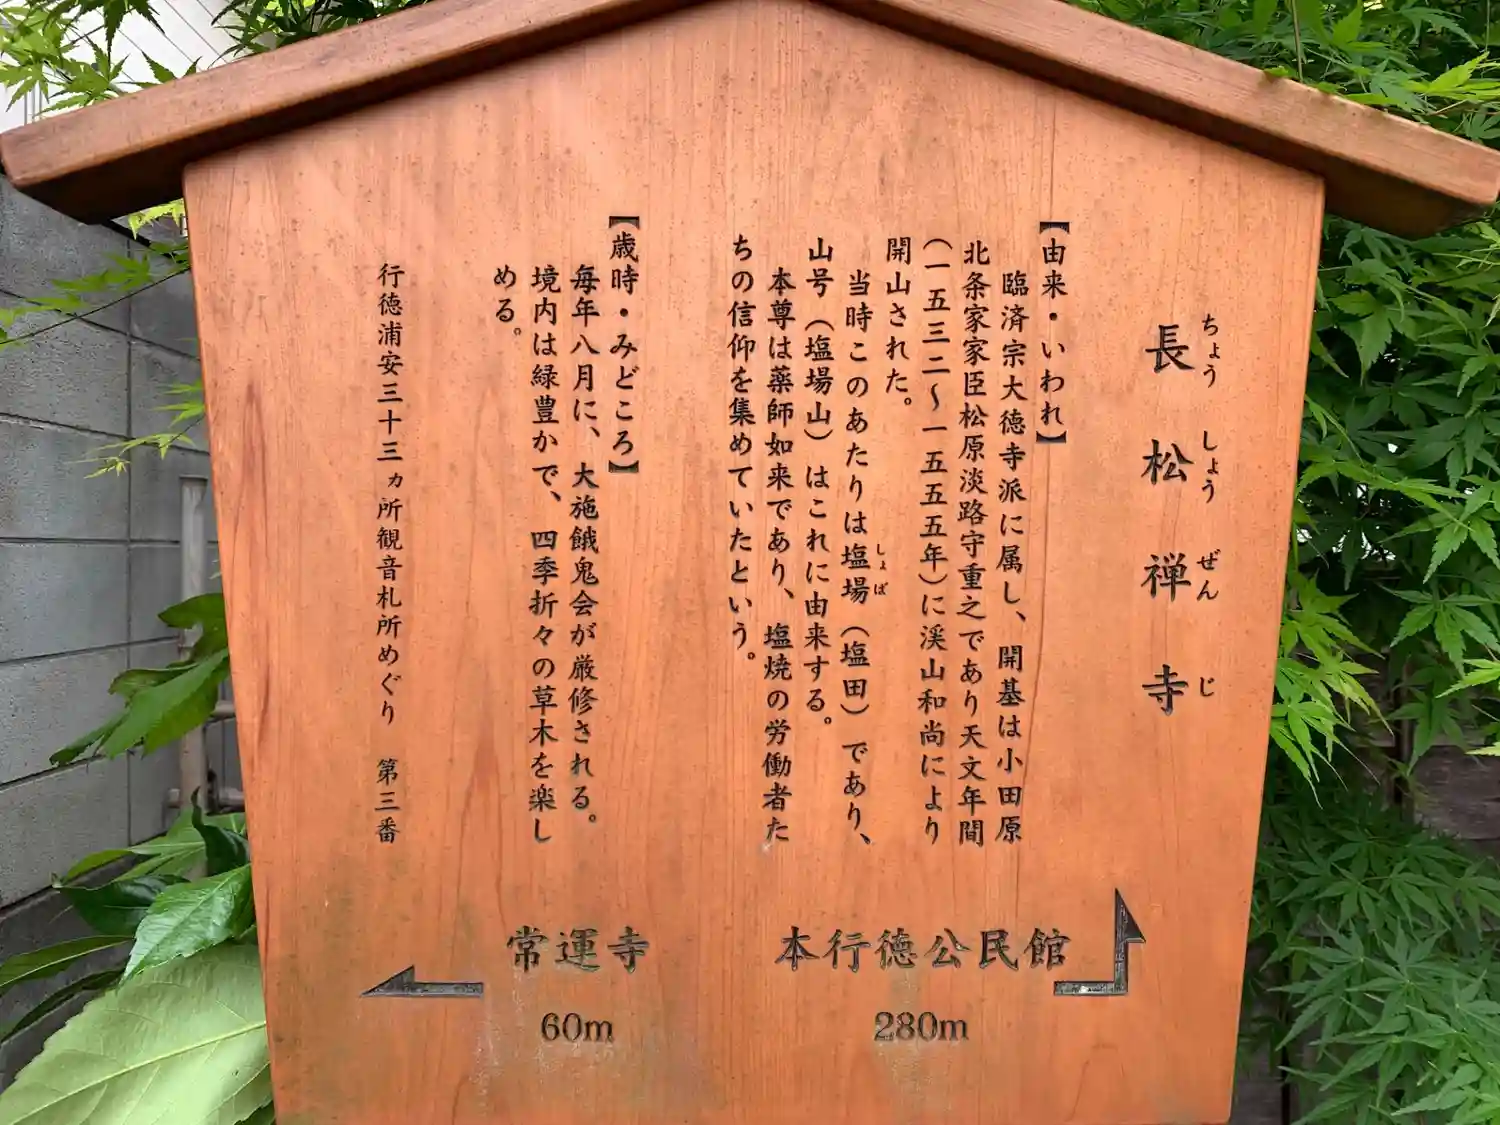 長松禅寺
ちょう しょう ぜん じ
【由来・いわれ】
臨済宗大徳寺派に属し、開基は小田原
北条家家臣松原淡路守重之であり天文年間
（一五三二〜一五五五年）に渓山和尚により
開山された。
当時このあたりは塩場（塩田）であり、
しょば
山号（塩場山）はこれに由来する。
本尊は薬師如来であり、塩焼の労働者た
ちの信仰を集めていたという。
【歳時・みどころ】
毎年八月に、大施餓鬼会が厳修される。
境内は緑豊かで、四季折々の草木を楽し
める。
行徳浦安三十三ヵ所観音札所めぐり 第三番
本行徳公民館
280m
常運寺
60m